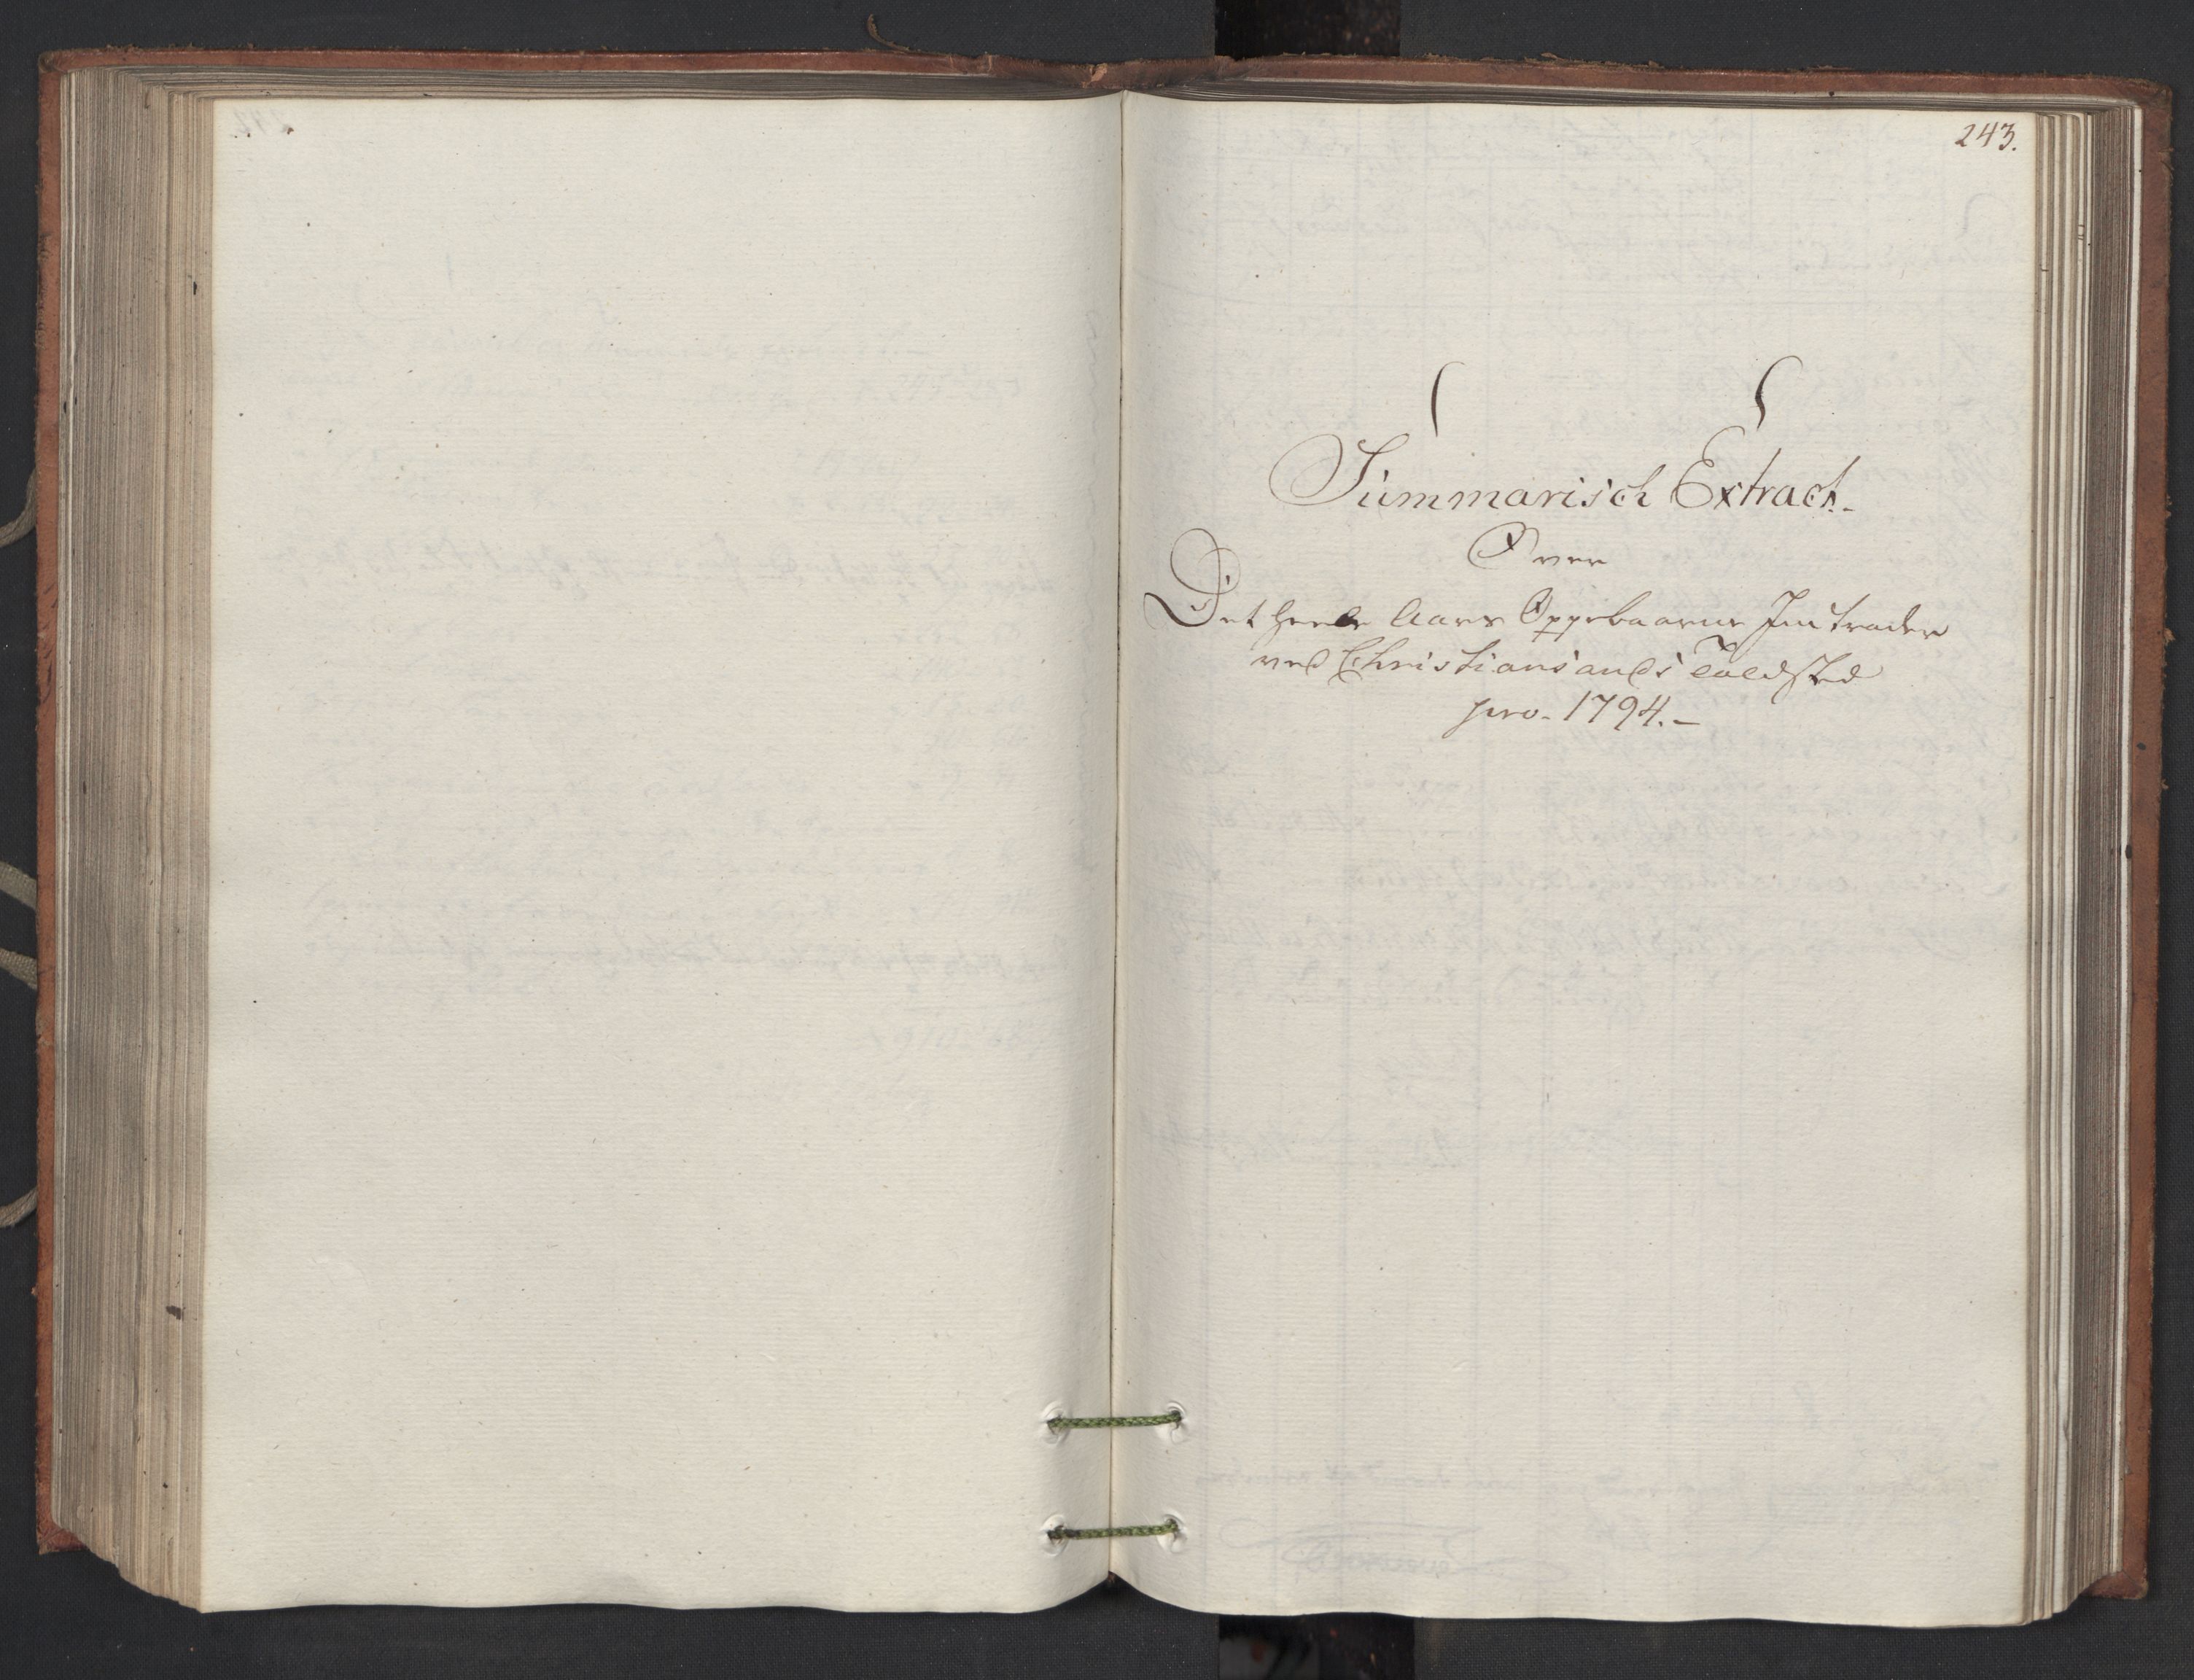 243.
Summarisch Extract.
Over
Det heele Aars Oppebaarne Intrader
ved Christiansands Toldsted
pro. 1794.-